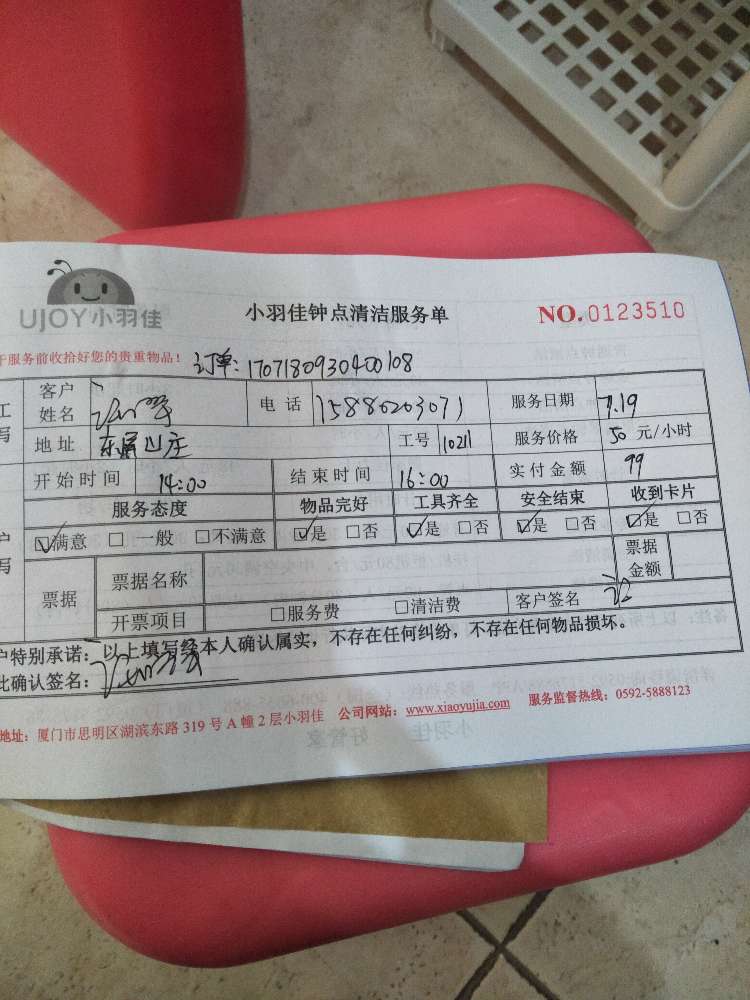 UJOY小羽佳 小羽佳钟点清洁服务单 NO.0123510
服务前收拾好您的贵重物品! 订单:1707180930400108
客户姓名 电话 15880203071 服务日期 7.19
地址 东屏山庄 工号 10211 服务价格 50 元/小时
开始时间 14:00 结束时间 16:00 实付金额 99
服务态度 物品完好 工具齐全 安全结束 收到卡片
☑满意 □一般 □不满意 ☑是 □否 ☑是 □否 ☑是 □否 ☑是 □否
票据 票据名称 票据金额
开票项目 □服务费 □清洁费 客户签名
户特别承诺:以上填写经本人确认属实,不存在任何纠纷,不存在任何物品损坏。
此确认签名:
地址:厦门市思明区湖滨东路319号A幢2层小羽佳 公司网站:www.xiaoyujia.com 服务监督热线:0592-5888123